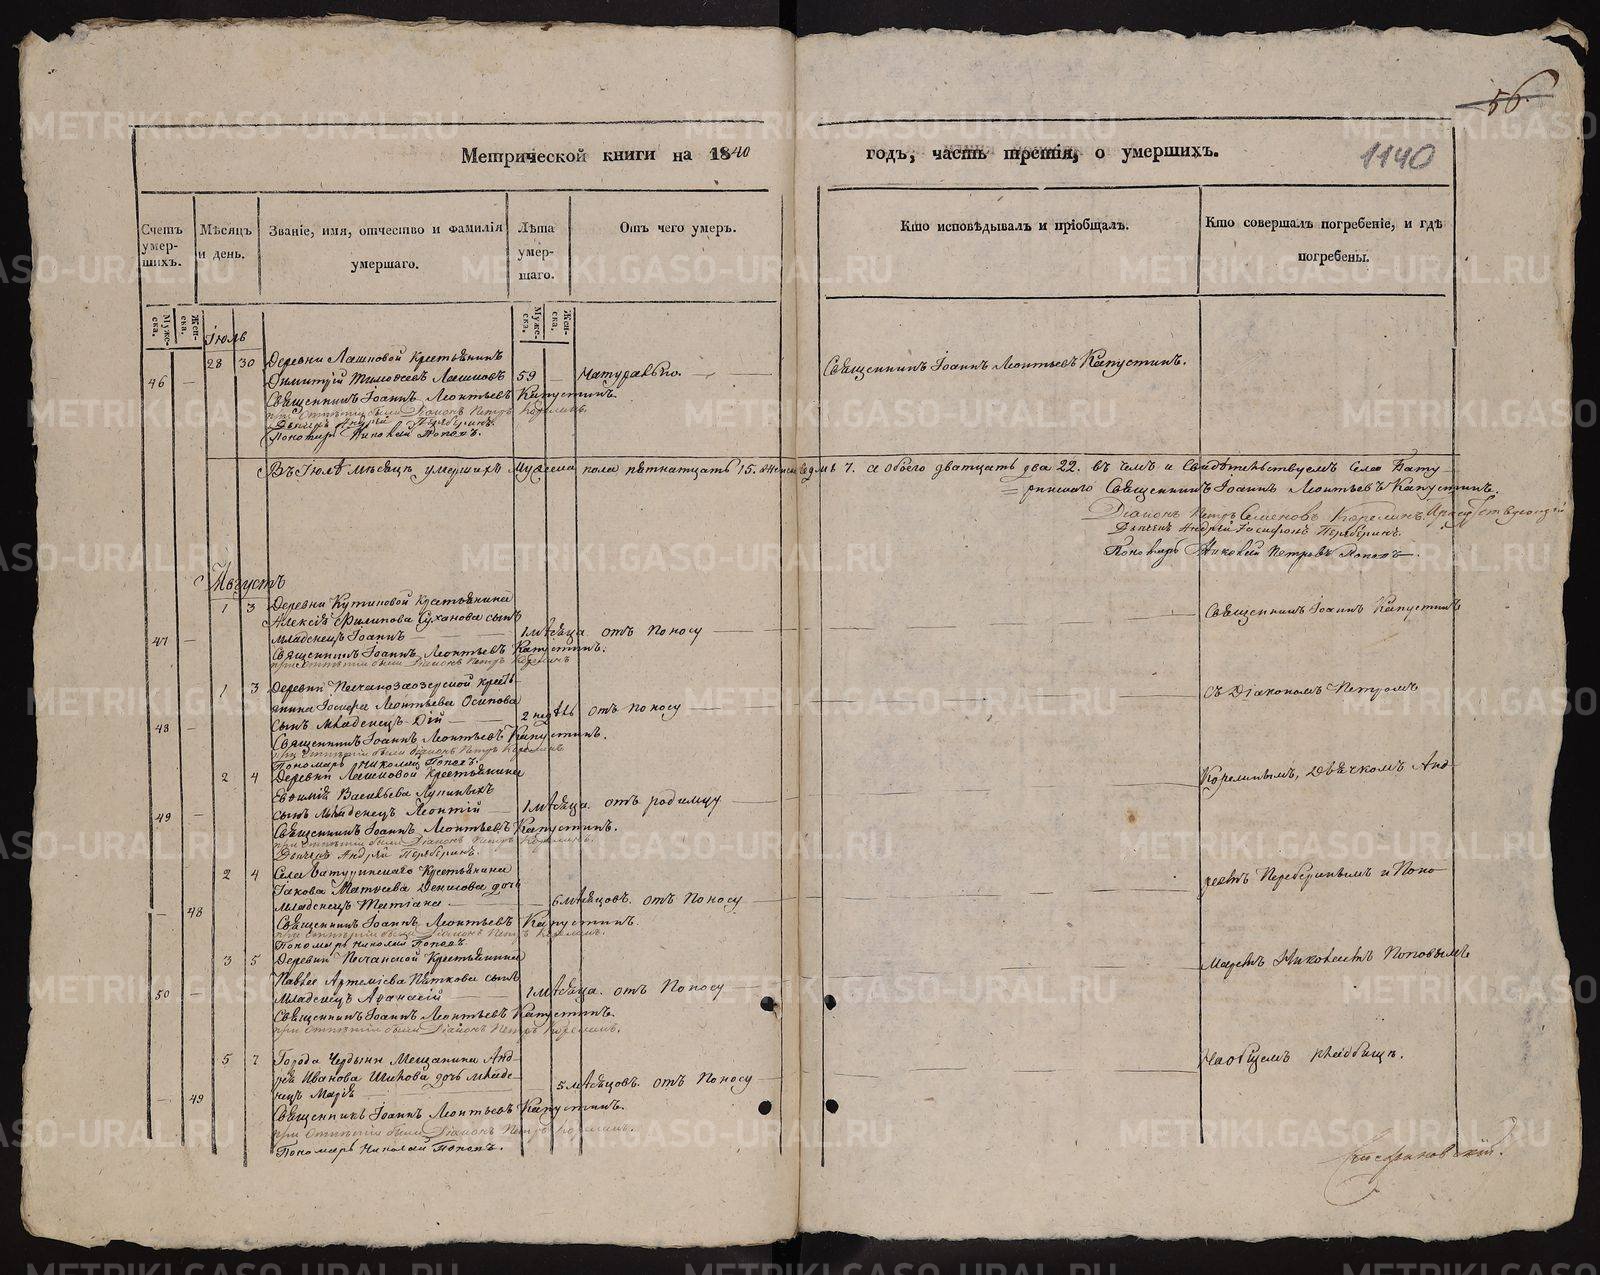 56.
Метрической книги на 1840
годъ, часть третія, о умершихъ.
1140
Счетъ умер-шихъ.
Мѣсяцъ и день.
Званіе, имя, отчество и фамилія умершаго.
Лѣта умер-шаго.
Отъ чего умеръ.
Кто исповѣдывалъ и пріобщалъ.
Кто совершалъ погребеніе, и гдѣ погребены.
Муже-ска.
Жен-ска.
Муже-ска.
Жен-ска.
Іюль
28 30 Деревни Лашковой Крестьянинъ
46 — Димитрій Тимоѳеевъ Лашковъ 59 — Натурально.
Священникъ Іоаннъ Леонтьевъ Капустинъ.
Священникъ Іоаннъ Леонтьевъ Капустинъ.
при отпѣтіи были Діаконъ Петръ Корелинъ.
Дьячекъ Андрей Перебринъ.
Пономарь Николай Поповъ.
Въ Іюлѣ мѣсяцѣ умершихъ Мужеска пола пятнатцать 15. женска седмь 7. а обоего дватцать два 22. въ чемъ и Свидѣтельствуемъ Села Бату-
=ринскаго Священникъ Іоаннъ Леонтьевъ Капустинъ.
Діаконъ Петръ Семеновъ Корелинъ.
Дьячекъ Андрей Перебринъ.
Пономарь Николай Петровъ Поповъ.
Августъ
1 3 Деревни Кутиковой Крестьянина
Алексія Филипова Суханова сынъ
47 — младенецъ Іоаннъ 1 мѣсяца. отъ поносу
Священникъ Іоаннъ Капустинъ
Священникъ Іоаннъ Леонтьевъ Капустинъ.
при отпѣтіи были Діаконъ Петръ Корелинъ
1 3 Деревни Песчанозаозерской кресть-
янина Іосифа Леонтьева Осипова
48 — сынъ младенецъ Дій 2 недѣль отъ поносу
съ Діакономъ Петромъ
Священникъ Іоаннъ Леонтьевъ Капустинъ.
при отпѣтіи были Діаконъ Петръ Корелинъ
Пономарь Николай Поповъ.
2 4 Деревни Лашковой Крестьянина
Евфимія Васильева Лупиныхъ
49 — сынъ младенецъ Леонтій 1 мѣсяца. отъ родимцу
Корелинымъ, Дьячкомъ Анд-
Священникъ Іоаннъ Леонтьевъ Капустинъ.
при отпѣтіи были Діаконъ Петръ Корелинъ.
Дьячекъ Андрей Перебринъ.
2 4 Села Батуринскаго Крестьянина
Іакова Матѳеева Денисова дочь
— 48 младенецъ Татіана — 6 мѣсяцовъ. отъ поносу
реемъ Перебринымъ и Поно-
Священникъ Іоаннъ Леонтьевъ Капустинъ.
при отпѣтіи были Діаконъ Петръ Корелинъ.
Пономарь Николай Поповъ.
3 5 Деревни Песчанской Крестьянина
Павла Артемьева Пяткова сынъ
50 — младенецъ Аѳанасій 1 мѣсяца. отъ поносу
маремъ Николаемъ Поповымъ
Священникъ Іоаннъ Леонтьевъ Капустинъ.
при отпѣтіи были Діаконъ Петръ Корелинъ.
5 7 Города Чердыни Мещанина Анд-
рея Иванова дочь младе-
— 49 нецъ Марія — 5 мѣсяцовъ. отъ поносу
На общемъ кладбищѣ.
Священникъ Іоаннъ Леонтьевъ Капустинъ.
при отпѣтіи были Діаконъ Петръ Корелинъ.
Пономарь Николай Поповъ.
METRIKI.GASO-URAL.RU